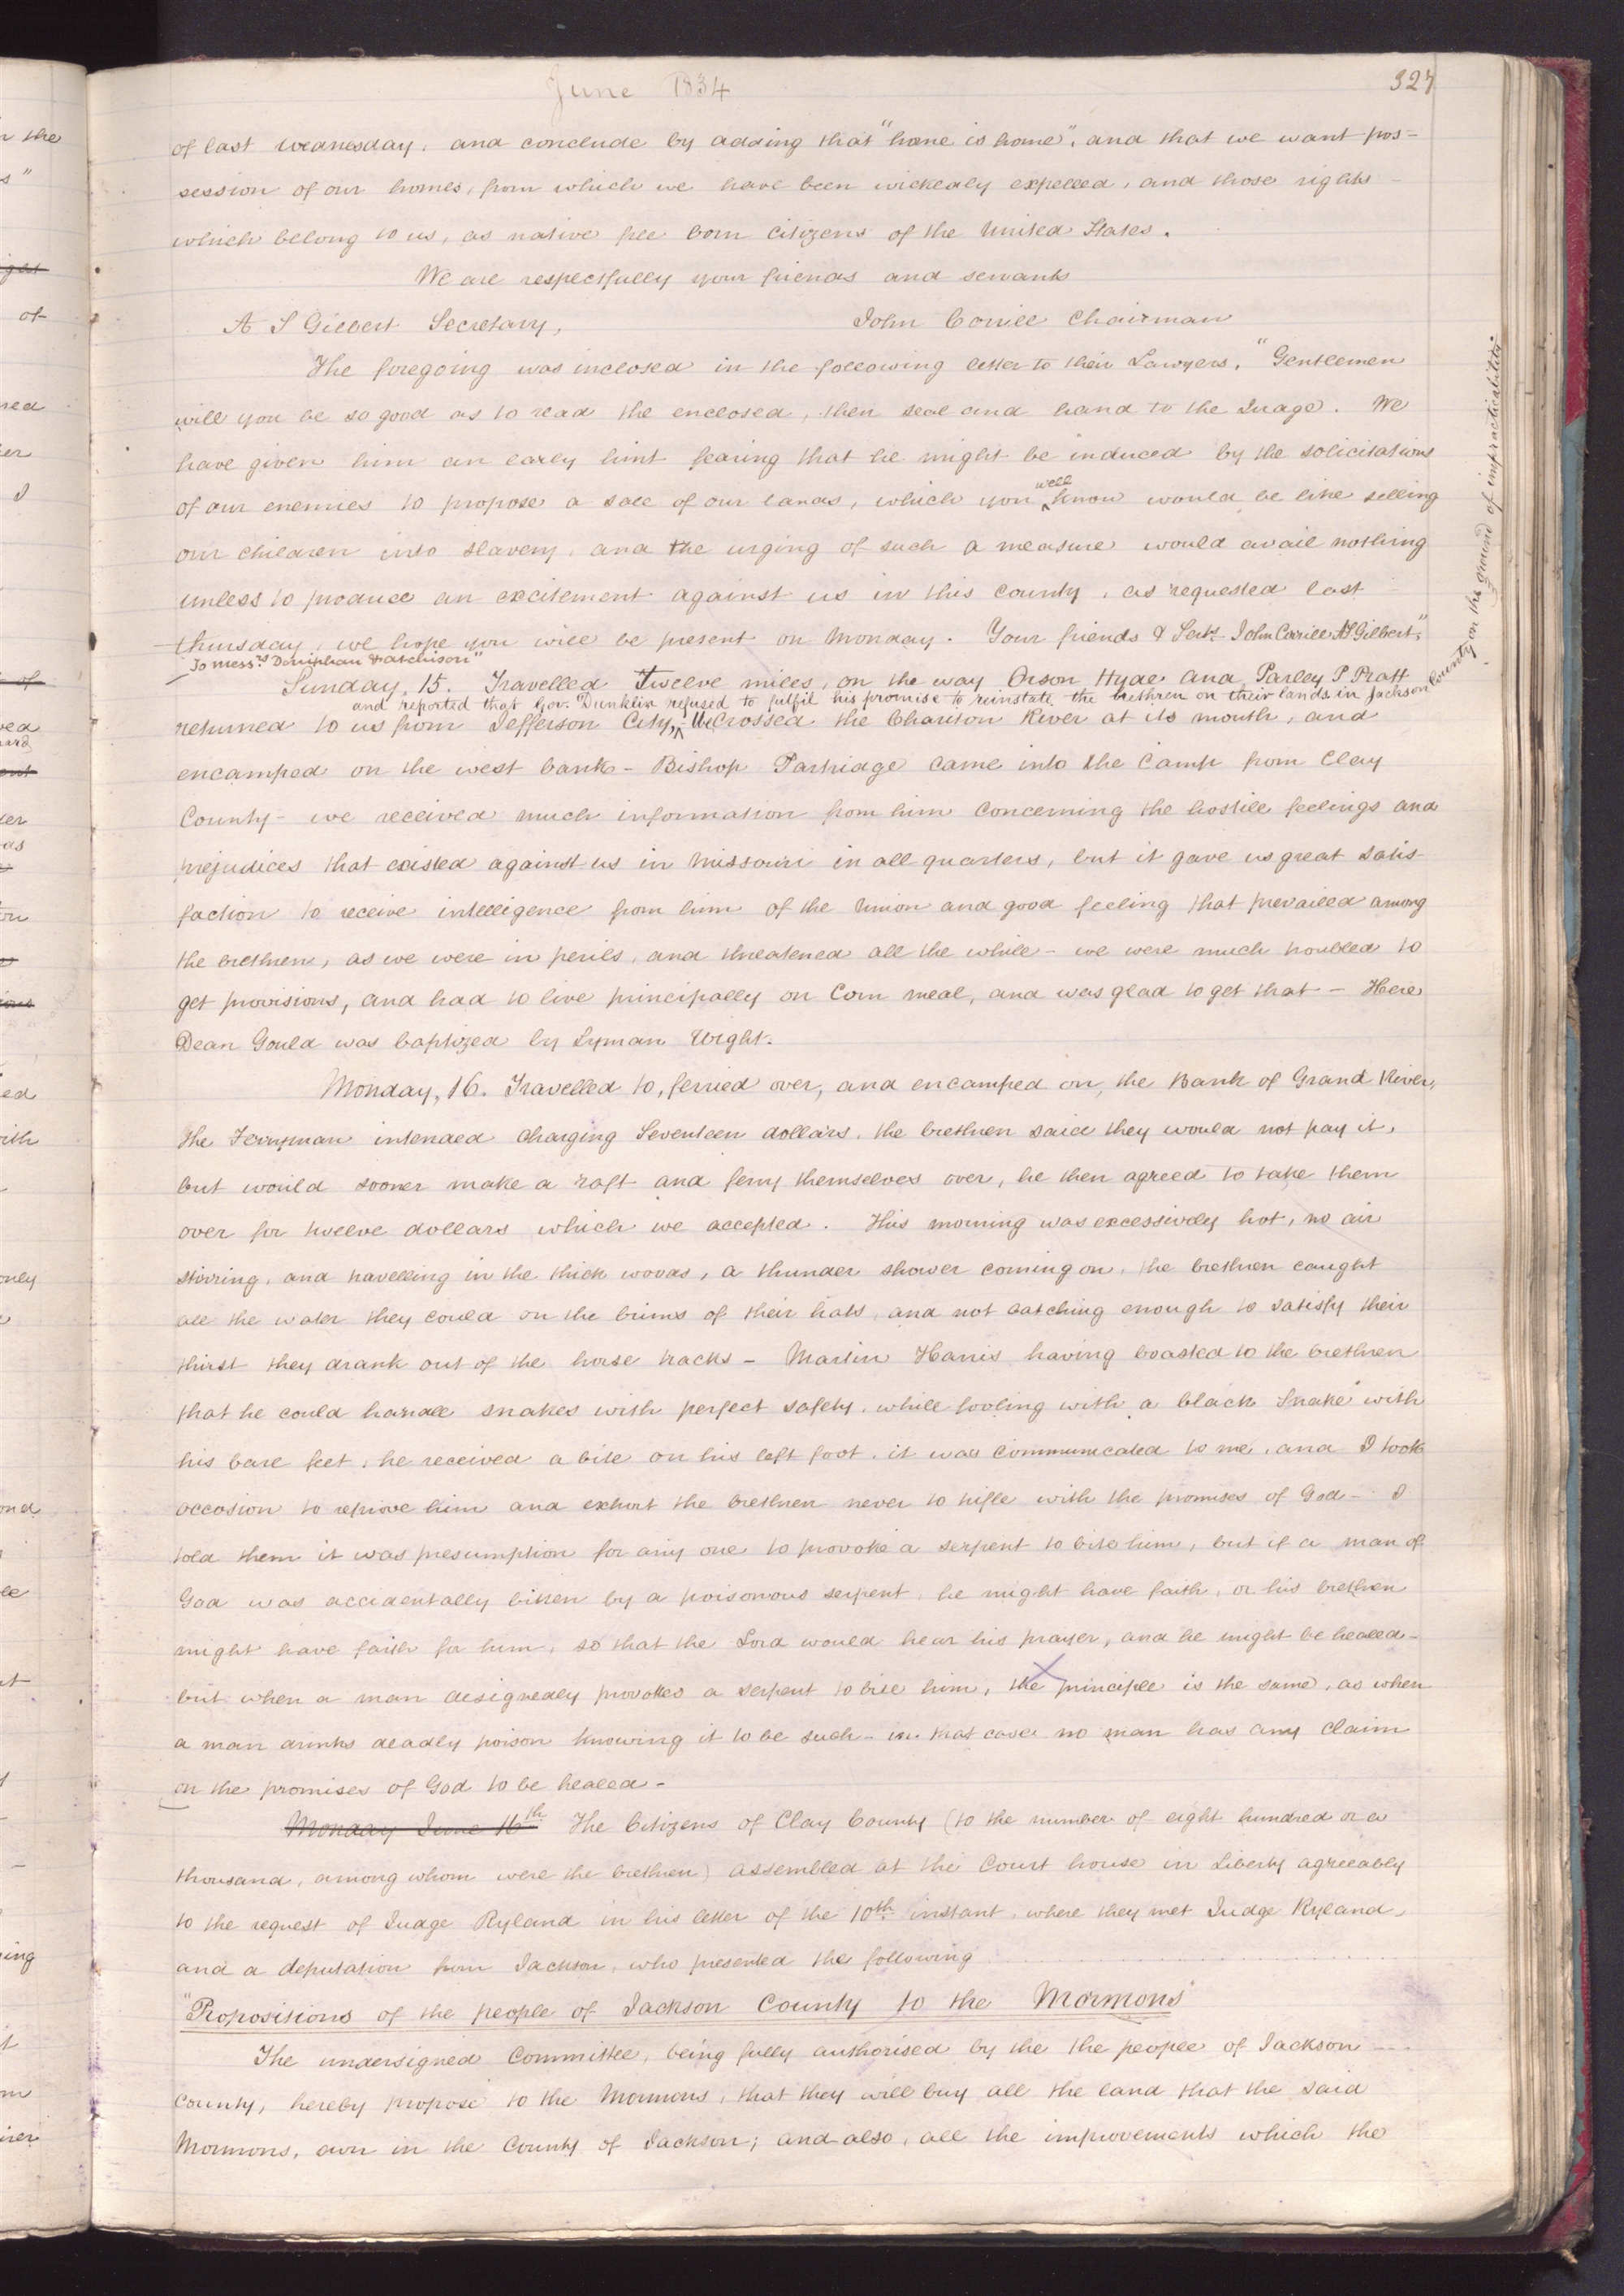 June 1834
327
of last wednesday, and conclude by adding that "home is home", and that we want pos-
session of our homes, from which we have been wickedly expelled, and those rights
which belong to us, as native free born citizens of the United States.
We are respectfully your friends and servants
A S Gilbert Secretary, John Corrill Chairman
The foregoing was inclosed in the following letter to their Lawyers. "Gentlemen
will you be so good as to read the enclosed, then seal and hand to the Judge. We
have given him an early hint fearing that he might be induced by the solicitations
of our enemies to propose a sale of our lands, which you well know would be like selling
our children into slavery, and the urging of such a measure would avail nothing
unless to produce an excitement against us in this county, as requested last
thursday, we hope you will be present on Monday. Your friends & Servts John Corrill A S Gilbert"
To Messrs Doniphan & atchison"
Sunday, 15. Travelled twelve miles, on the way Orson Hyde and Parley P Pratt
and reported that Gov. Dunklin refused to fulfil his promise to reinstate the brethren on their lands in Jackson County on the ground of impracticability
returned to us from Jefferson City, We Crossed the Chariton River at its mouth, and
encamped on the west bank - Bishop Partridge came into the Camp from Clay
County - we received much information from him concerning the hostile feelings and
prejudices that existed against us in Missouri in all quarters, but it gave us great satis-
faction to receive intelligence from him of the Union and good feeling that prevailed among
the brethren, as we were in perils, and threatened all the while - we were much troubled to
get provisions, and had to live principally on Corn meal, and was glad to get that - Here
Dean Gould was baptized by Lyman Wight.
Monday, 16. Travelled to, ferried over, and encamped on, the Bank of Grand River,
the Ferryman intended charging Seventeen dollars. the brethren said they would not pay it,
but would sooner make a raft and ferry themselves over, he then agreed to take them
over for twelve dollars which we accepted. This morning was excessively hot, no air
stirring, and travelling in the thick woods, a thunder shower coming on, the brethren caught
all the water they could on the brims of their hats, and not catching enough to satisfy their
thirst they drank out of the horse tracks - Martin Harris having boasted to the brethren
that he could handle snakes with perfect safety, while fooling with a black Snake with
his bare feet, he received a bite on his left foot. it was communicated to me, and I took
occasion to reprove him and exhort the brethren never to trifle with the promises of God - I
told them it was presumption for any one to provoke a serpent to bite him, but if a man of
God was accidentally bitten by a poisonous serpent, he might have faith, or his brethren
might have faith for him, so that the Lord would hear his prayer, and he might be healed -
but when a man designedly provokes a serpent to bite him, the principle is the same, as when
a man drinks deadly poison knowing it to be such - in that case no man has any claim
on the promises of God to be healed -
Monday June 16th The Citizens of Clay County (to the number of eight hundred or a
thousand, among whom were the brethren) assembled at the Court house in Liberty agreeably
to the request of Judge Ryland in his letter of the 10th instant, where they met Judge Ryland,
and a deputation from Jackson, who presented the following
"Propositions of the people of Jackson County to the Mormons"
The undersigned Committee, being fully authorised by the the people of Jackson
County, hereby propose to the Mormons, that they will buy all the land that the said
Mormons, own in the County of Jackson; and also, all the improvements which the